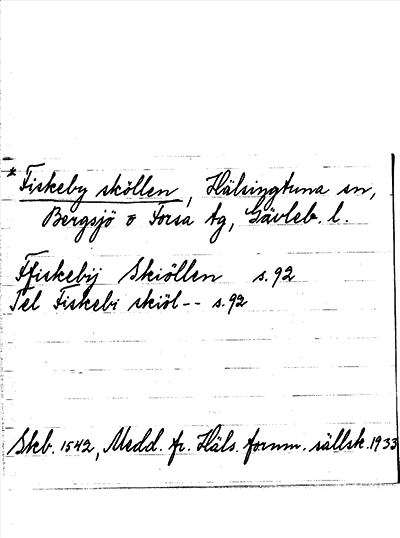 * Fiskeby sköllen, Hälsingtuna sn,
Bergsjö o Forsa tg, Gävleb. l.
Ffiskebij Skiöllen s. 92
Tel Fiskebi skiöl-- s. 92
Skb. 1542, Medd. fr. Häls. fornm. sällsk. 1933